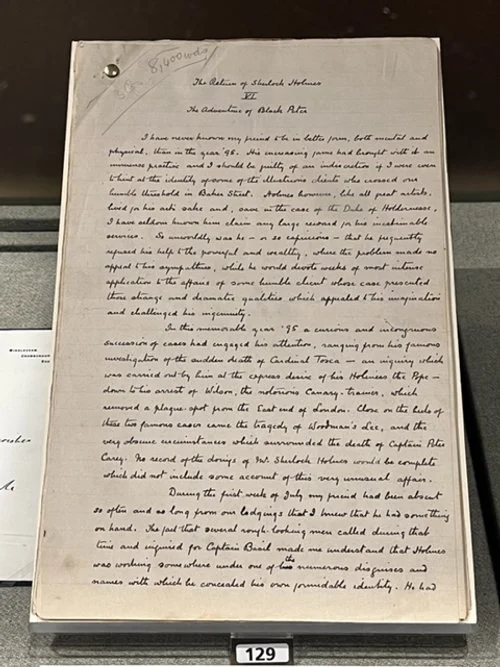 8,400 wds
The Return of Sherlock Holmes
VI
The Adventure of Black Peter
I have never known my friend to be in better form, both mental and
physical, than in the year '95. His increasing fame had brought with it an
immense practice and I should be guilty of an indiscretion if I were even
to hint at the identity of some of the illustrious clients who crossed our
humble threshold in Baker Street. Holmes however, like all great artists,
lived for his art's sake and, save in the case of the Duke of Holdernesse,
I have seldom known him claim any large reward for his inestimable
services. So unworldly was he – or so capricious – that he frequently
refused his help to the powerful and wealthy, where the problem made no
appeal to his sympathies, while he would devote weeks of most intense
application to the affairs of some humble client whose case presented
those strange and dramatic qualities which appealed to his imagination
and challenged his ingenuity.
In this memorable year '95 a curious and incongruous
succession of cases had engaged his attention, ranging from his famous
investigation of the sudden death of Cardinal Tosca – an inquiry which
was carried out by him at the express desire of his Holiness the Pope –
down to his arrest of Wilson, the notorious Canary-trainer, which
removed a plague-spot from the East end of London. Close on the heels of
these two famous cases came the tragedy of Woodman's Lee, and the
very obscure circumstances which surrounded the death of Captain Peter
Carey. No record of the doings of Mr. Sherlock Holmes would be complete
which did not include some account of this very unusual affair.
During the first week of July my friend had been absent
so often and so long from our lodgings that I knew that he had something
on hand. The fact that several rough-looking men called during that
time and inquired for Captain Basil made me understand that Holmes
was working somewhere under one of the numerous disguises and
names with which he concealed his own formidable identity. He had
129